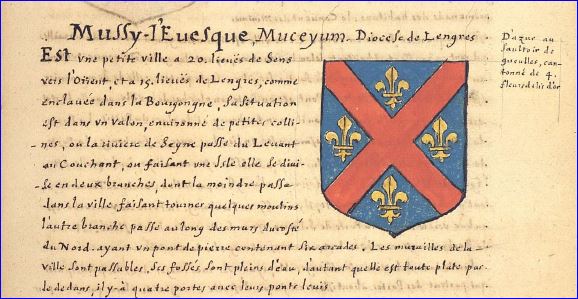 Mussy-l'Euesque, Muceyum. Diocese de Lengres
Est vne petite ville a 20. lieuës de Sens
vers l'Orient, et a 15. lieuës de Lengres, comme
enclauée dans la Bourgongne, sa situation
est dans vn valon, enuironné de petites colli-
-nes, ou la riuiere de Seyne passe du Leuant
au Couchant, ou faisant vne Isle elle se diui-
-se en deux branches, dont la moindre passe
dans la ville faisant tourner quelques moulins
l'autre branche passe au long des murs du costé
du Nord. ayant vn pont de pierre contenant six arcades. Les murailles de la
ville sont passables, ses fossés sont pleins d'eau, d'autant qu'elle est toute plate par
le dedans, il y-à quatre portes auec leurs ponts leuis
D'azur au
saultoir de
gueulles, can-
tonné de 4.
fleurs de lis d'or